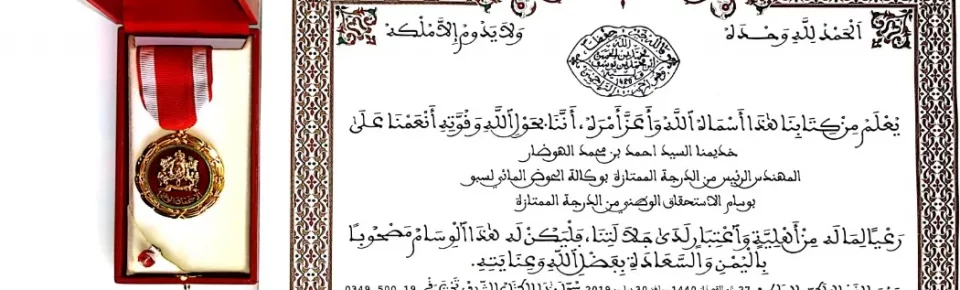 الحمد لله وحده
ولا يدوم إلا ملكه
يعلم من كتابنا هذا أسماه الله وأعز أمره، أننا بحول الله وقوته أنعمنا على
خديمنا السيد احمد بن محمد الهوضار
المهندس الرئيس من الدرجة الممتازة بوكالة الحوض المائي لسبو
بوسام الاستحقاق الوطني من الدرجة الممتازة
رعيا لما له من أهلية واعتبار لدى جلالتنا، فليكن له هذا الوسام مصحوبا
باليمن والسعادة بفضل الله وعنايته.